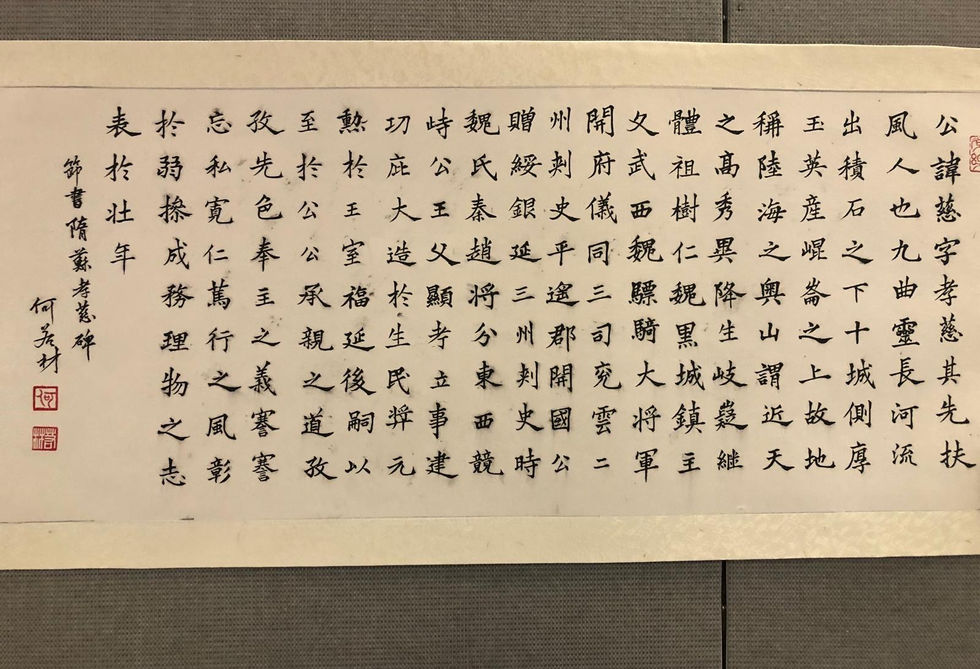 公諱慈字孝慈其先扶
風人也九曲靈長河流
出積石之下十城側厚
玉英産崐崙之上故地
稱陸海之輿山謂近天
之髙秀異降生岐嶷继
體祖樹仁魏黒城鎮主
父武西魏驃騎大将軍
開府儀同三司兖雲二
州刾史平遙郡開國公
贈綏銀延三州刾史時
魏氏秦趙将分東西競
峙公王父顯考立事建
功庇大造於生民奨元
勲於王室福延後嗣以
至於公公承親之道孜
孜先色奉主之義謇謇
忘私寛仁篤行之風彰
於弱操成務理物之志
表於壮年
節書隋蘇孝慈碑
何若材
何